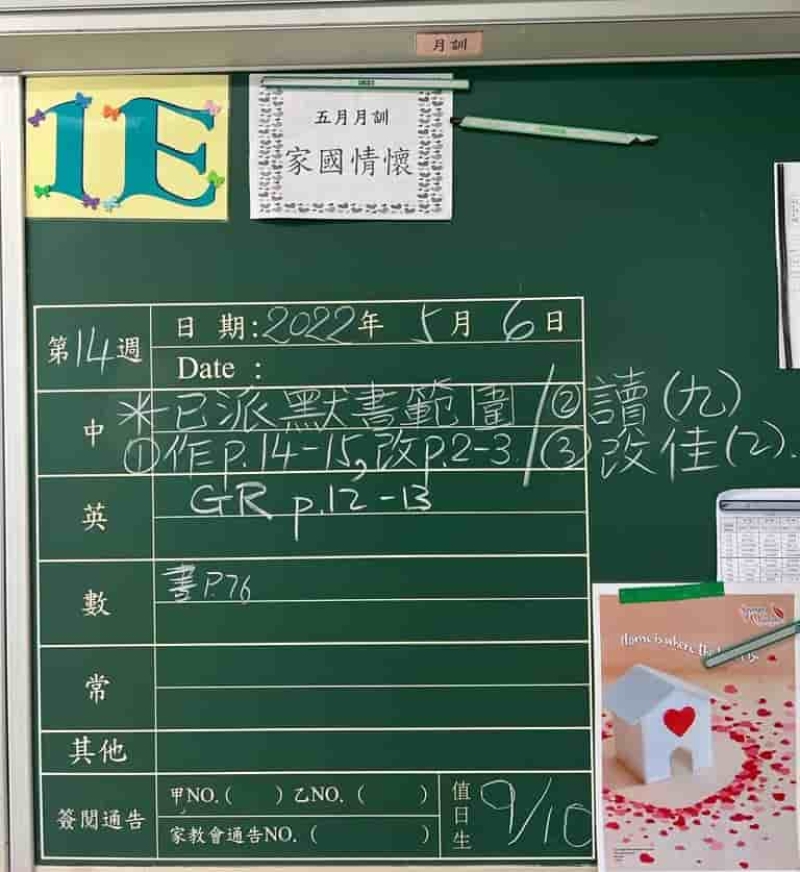 月訓
1E
五月月訓
家國情懷
第14週
日 期:2022年 5月 6日
Date :
中
*已派默書範圍/②讀(九)
①作p.14-15,改p.2-3./③改佳(2).
英
GR p.12-13
數
書P.76
常
其他
簽閱通告
甲NO.( )乙NO.( )
家教會通告NO.( )
值日生
9/10
Home is where the